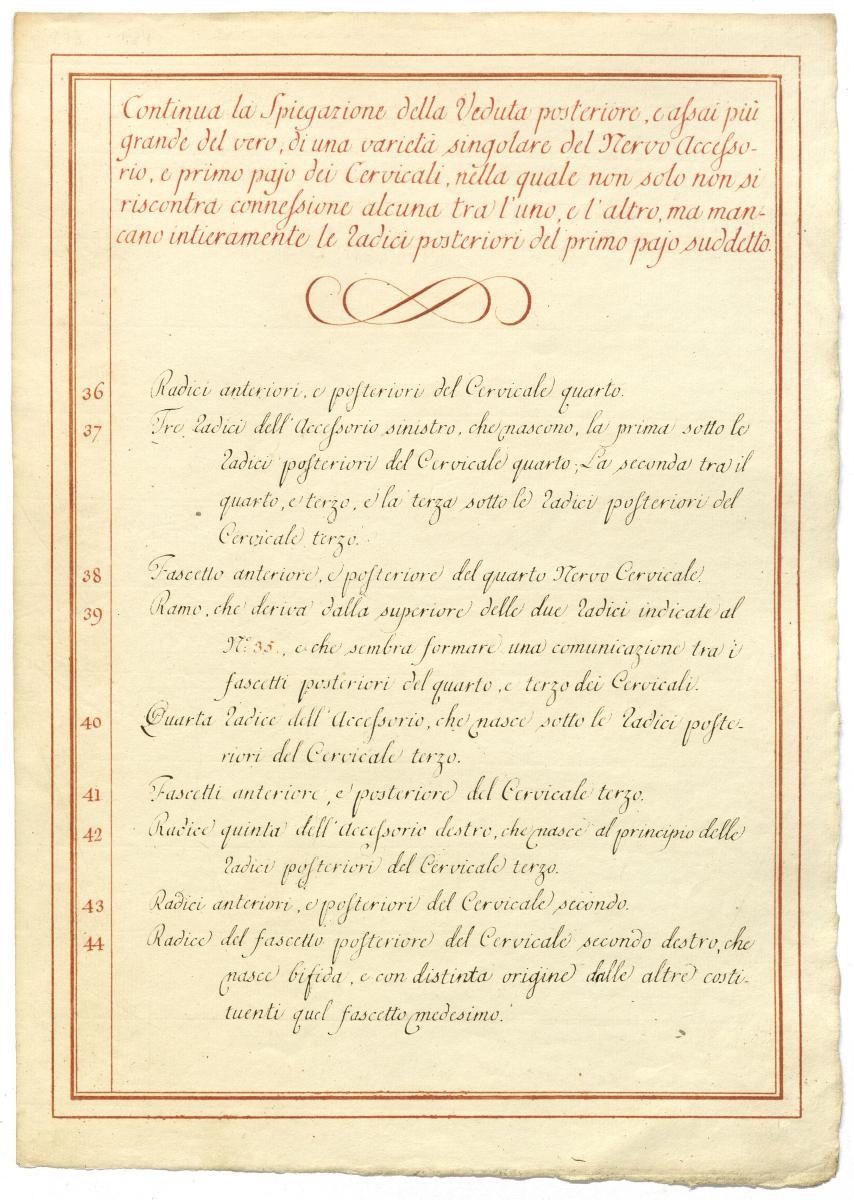 Continua la Spiegazione della Veduta posteriore, e assai più
grande del vero, di una varietà singolare del Nervo Accesso-
rio, e primo pajo dei Cervicali, nella quale non solo non si
riscontra connessione alcuna tra l'uno, e l'altro, ma man-
cano intieramente le Radici posteriori del primo pajo suddetto.
36 Radici anteriori, e posteriori del Cervicale quarto.
37 Tre Radici dell'Accessorio sinistro, che nascono, la prima sotto le
Radici posteriori del Cervicale quarto; La seconda tra il
quarto, e terzo, e la terza sotto le Radici posteriori del
Cervicale terzo.
38 Fascetto anteriore, e posteriore del quarto Nervo Cervicale.
39 Ramo, che deriva dalla superiore delle due Radici indicate al
N.º 35., e che sembra formare una comunicazione tra i
fascetti posteriori del quarto, e terzo dei Cervicali.
40 Quarta Radice dell'Accessorio, che nasce sotto le Radici poste-
riori del Cervicale terzo.
41 Fascetti anteriore, e posteriore del Cervicale terzo.
42 Radice quinta dell'Accessorio destro, che nasce al principio delle
Radici posteriori del Cervicale terzo.
43 Radici anteriori, e posteriori del Cervicale secondo.
44 Radice del fascetto posteriore del Cervicale secondo destro, che
nasce bifida, e con distinta origine dalle altre costi-
tuenti quel fascetto medesimo.